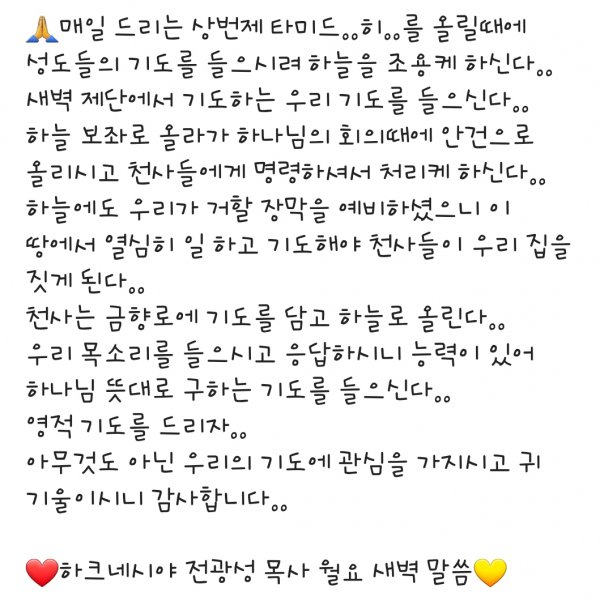 🙏매일 드리는 상번제 타미드..히..를 올릴때에
성도들의 기도를 들으시려 하늘을 조용케 하신다..
새벽 제단에서 기도하는 우리 기도를 들으신다..
하늘 보좌로 올라가 하나님의 회의때에 안건으로
올리시고 천사들에게 명령하셔서 처리케 하신다..
하늘에도 우리가 거할 장막을 예비하셨으니 이
땅에서 열심히 일 하고 기도해야 천사들이 우리 집을
짓게 된다..
천사는 금향로에 기도를 담고 하늘로 올린다..
우리 목소리를 들으시고 응답하시니 능력이 있어
하나님 뜻대로 구하는 기도를 들으신다..
영적 기도를 드리자..
아무것도 아닌 우리의 기도에 관심을 가지시고 귀
기울이시니 감사합니다..
❤️하크네시야 전광성 목사 월요 새벽 말씀💛